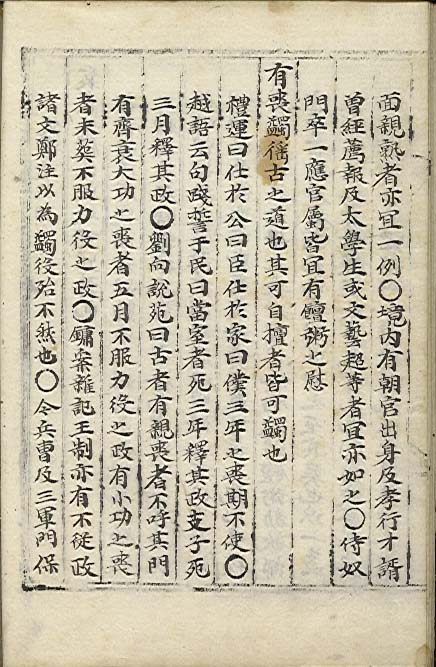 面親熟者亦宜一例〇境內有朝官出身及孝行才諝
曾經薦報及太學生或文藝超等者宜亦如之〇侍奴
門卒一應官屬皆宜有饘粥之慰
有喪蠲徭古之道也其可自擅者皆可蠲也
禮運曰仕於公曰臣仕於家曰僕三年之喪期不使〇
越語云句踐誓于民曰當室者死三年釋其政支子死
三月釋其政〇劉向說苑曰古者有親喪者不呼其門
有齊衰大功之喪者五月不服力役之政有小功之喪
者未葬不服力役之政〇鏞案雜記王制亦有不從政
諸文鄭注以為蠲役殆不然也〇今兵曹及三軍門保